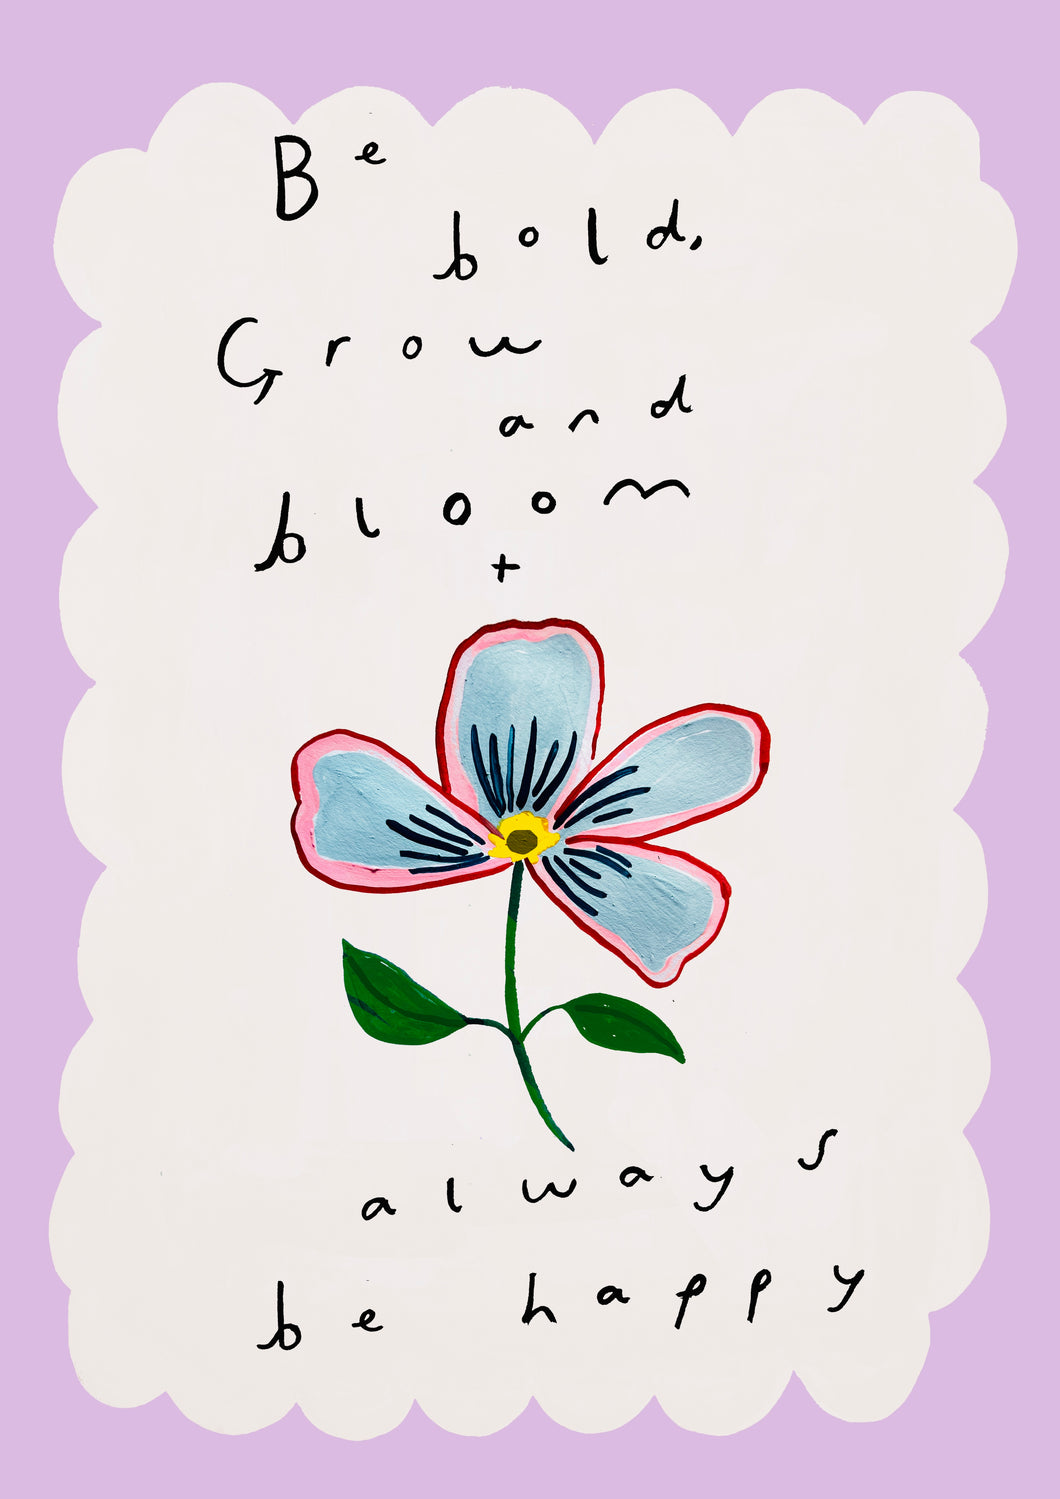 Be
bold,
Grow
and
bloom
+
always
be happy